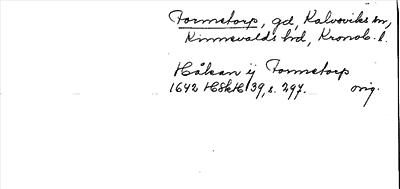 Tormestorp, gd, Kalvsviks sn,
Kinnevalds hd, Kronob. l.
Håkan ij Tormetorp
1642 HSkH 39, s. 297. orig.